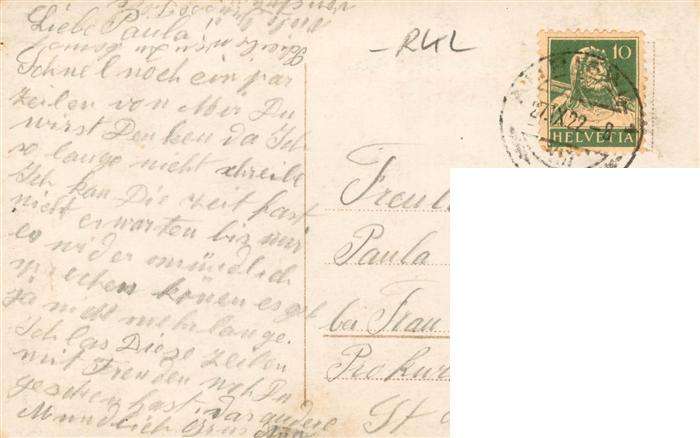 Liebe Paula
Schnel noch ein par
Zeilen von Mir Du
wirst Denken da Ich
so lange nicht schreibe
Ich kan Die Zeit fast
nicht erwarten bis wir
es wider mündlich
sprechen könen es get
ja nicht mehr lange.
Ich las Dieze Zeilen
mit Freuden
geschen hast das andere
Mündlich Grus
-RKL
10
27.IX.22-8
HELVETIA
Freul
Paula
bei Frau
Prokur
St